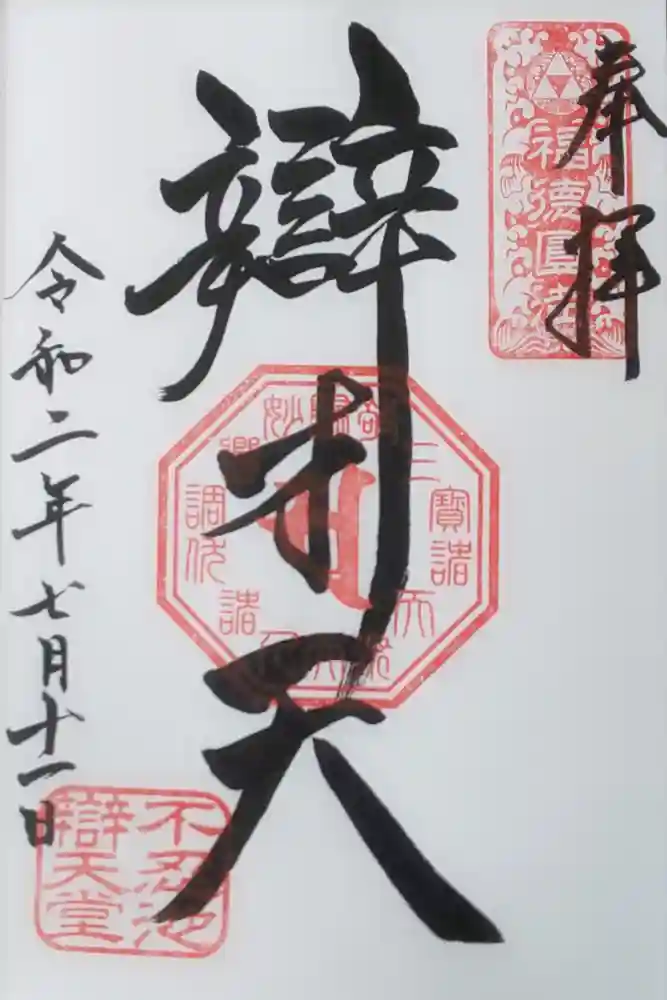 奉拝
福德圓滿
辯才天
令和二年七月十一日
不忍池
辯天堂